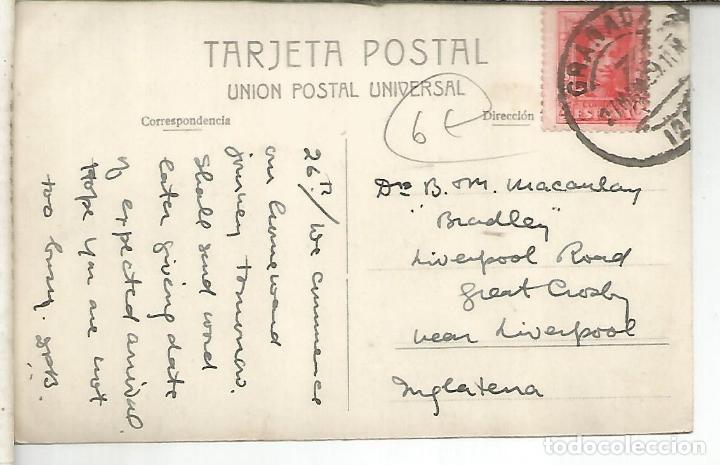 TARJETA POSTAL
UNION POSTAL UNIVERSAL
Correspondencia
Dirección
6 €
GRANADA
26th/ We commence
our homeward
journey tomorrow.
Shall send word
later giving date
of expected arrival.
Hope you are not
too busy.
Drs B. & M. Macaulay
"Bradley"
Liverpool Road
Great Crosby
near Liverpool
Inglaterra
todocoleccion